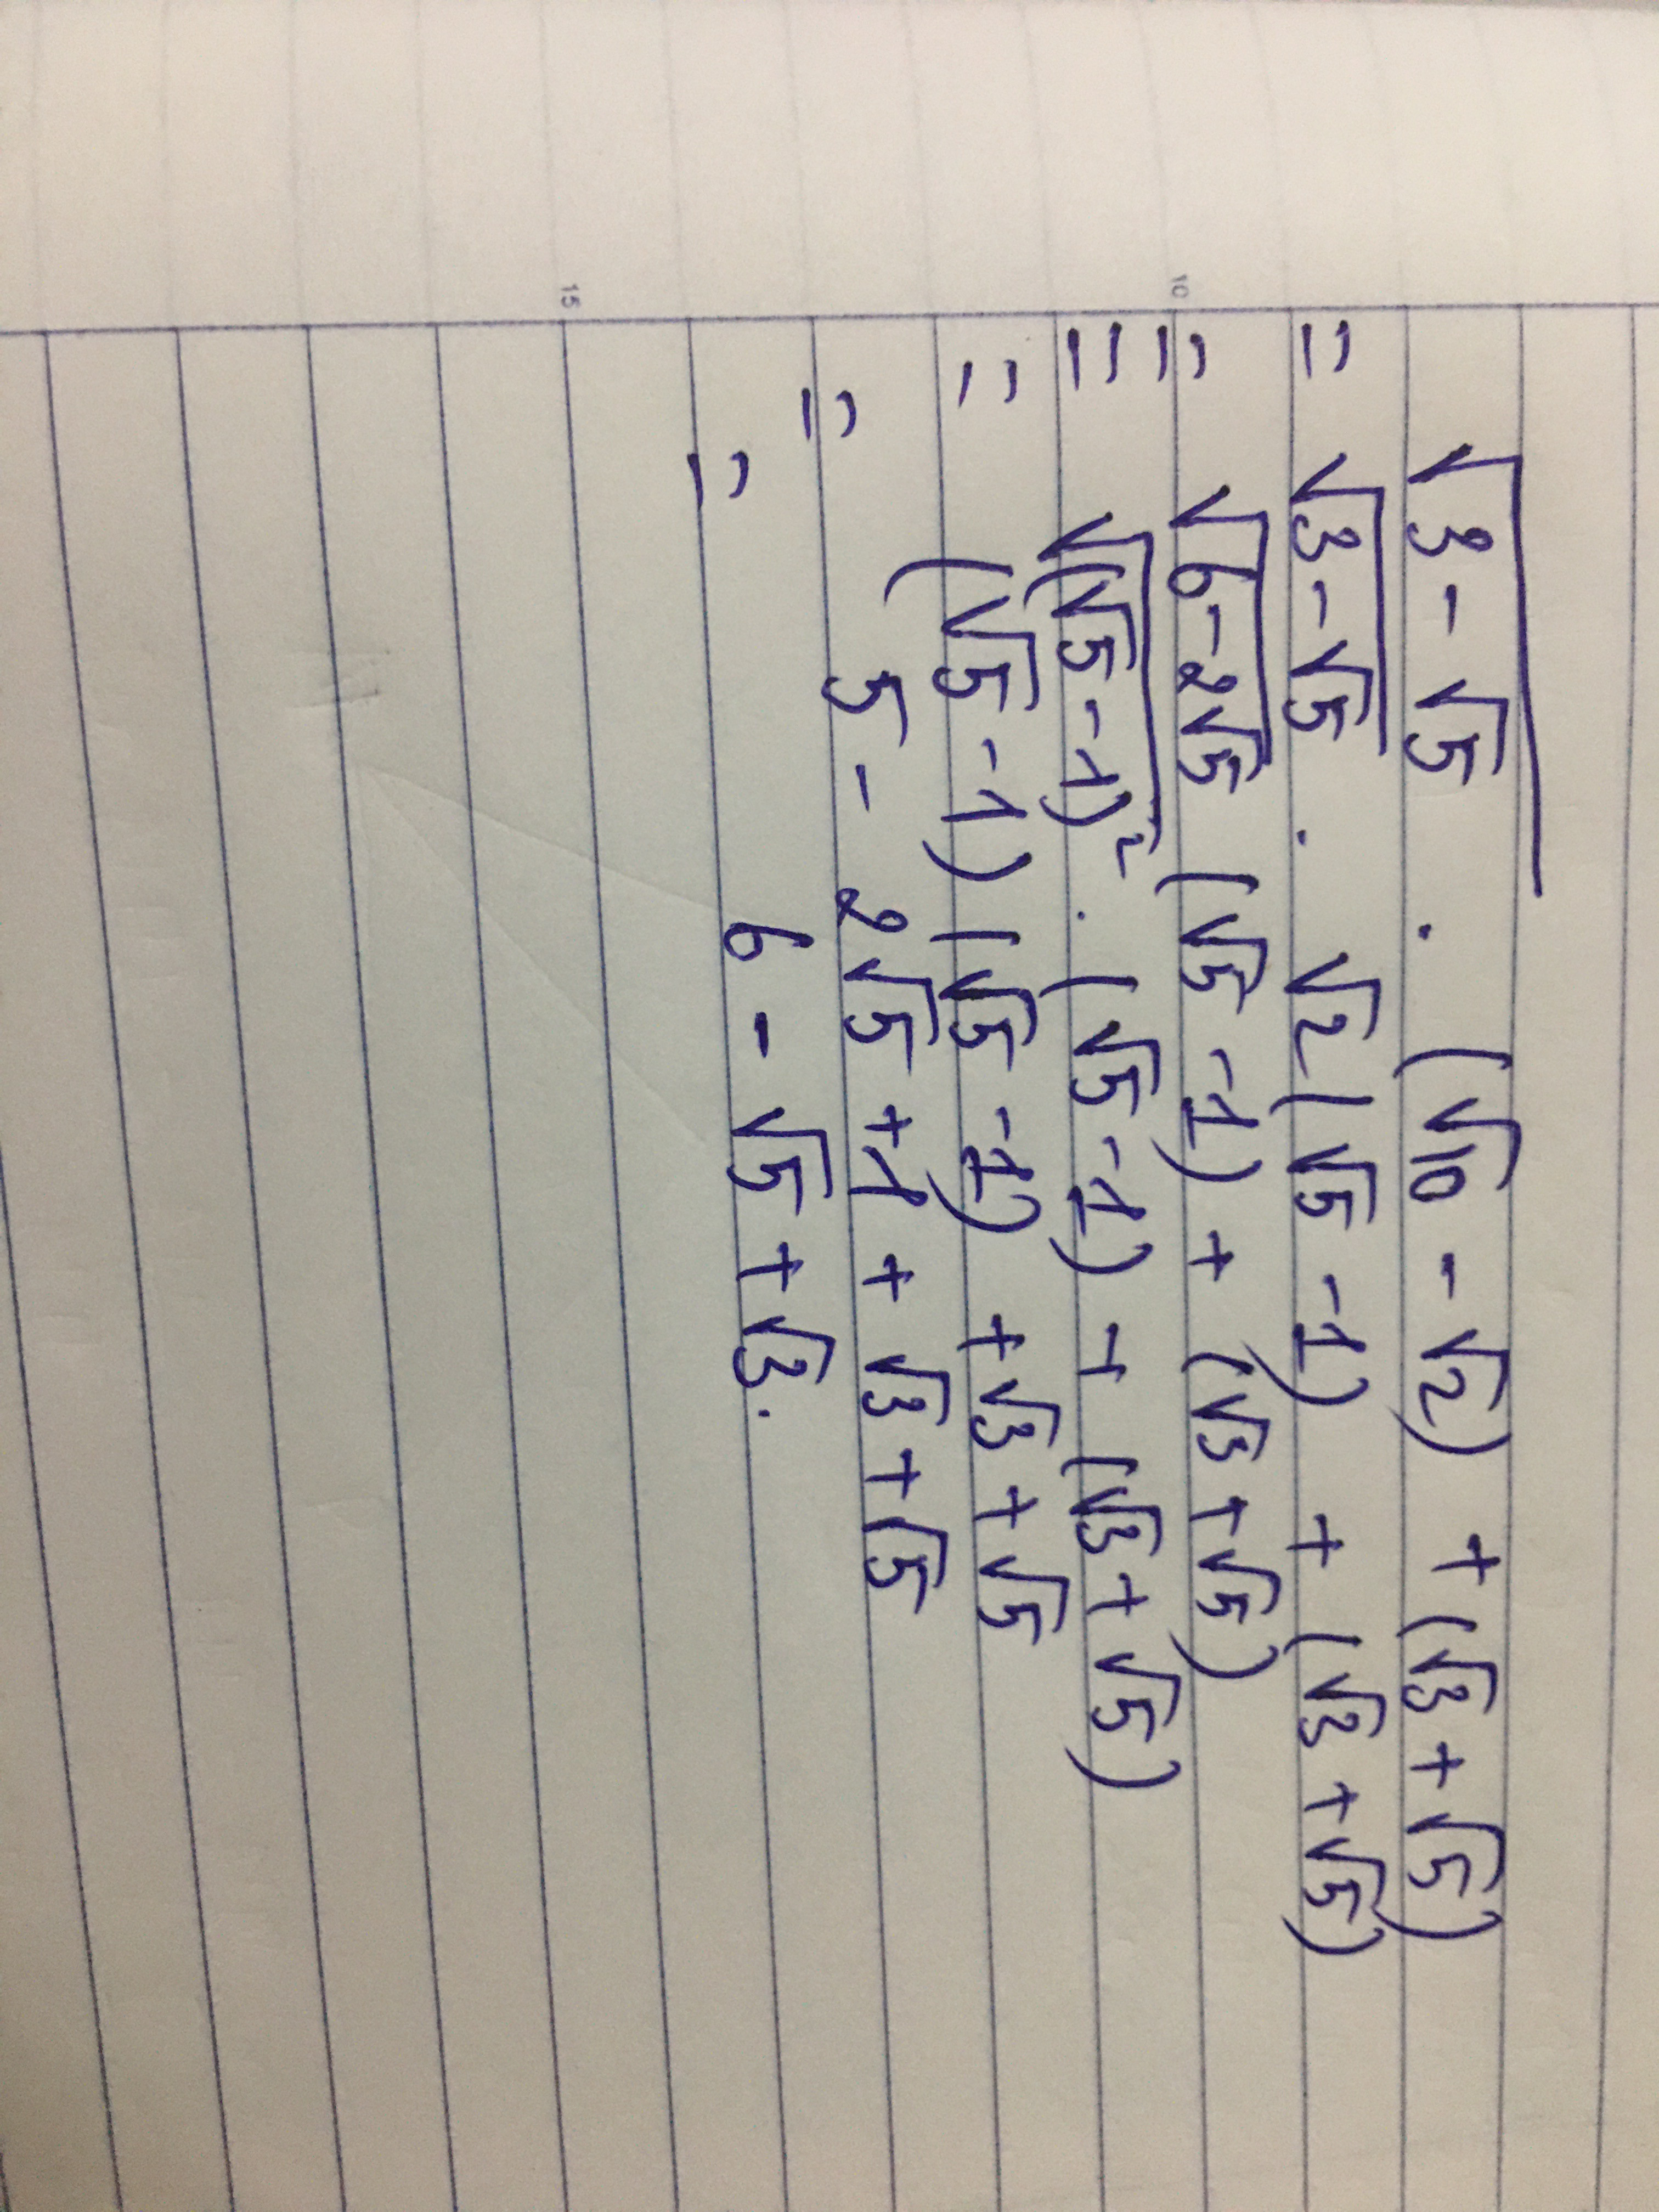 √(3 - √5) . (√10 - √2) + (√3 + √5)
= √(3 - √5) . √2 (√5 - 1) + (√3 + √5)
= √(6 - 2√5) (√5 - 1) + (√3 + √5)
= √((√5 - 1)²) . (√5 - 1) + (√3 + √5)
= (√5 - 1) (√5 - 1) + √3 + √5
= 5 - 2√5 + 1 + √3 + √5
= 6 - √5 + √3.
10
15